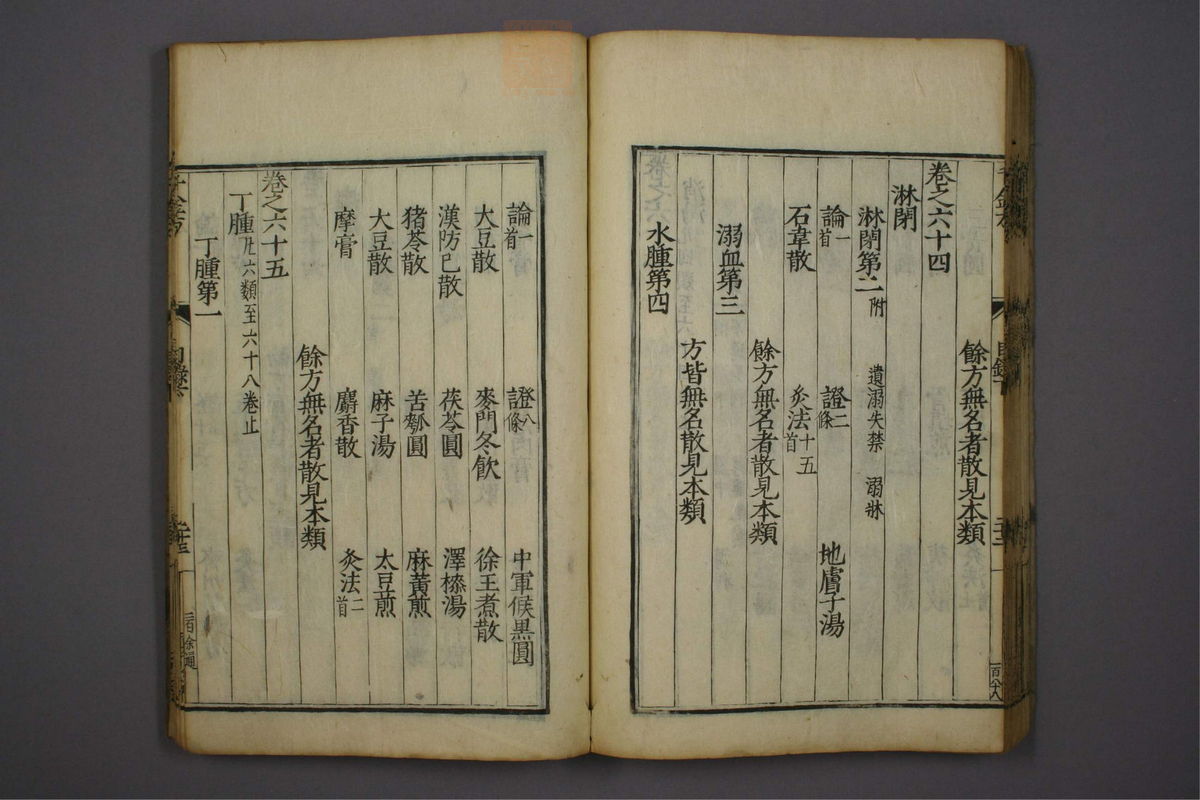 餘方無名者散見本類
卷之六十四
淋閉
淋閉第二附 遺溺失禁 溺牀
論一首 證二條 地膚子湯
石韋散 灸法十五首
餘方無名者散見本類
溺血第三
方皆無名散見本類
水腫第四
論一首 證八條 中軍候黒圓
大豆散 麥門冬飲 徐王煮散
漢防已散 茯苓圓 澤㯶湯
猪苓散 苦瓠圓 麻黃煎
大豆散 麻子湯 太豆煎
摩膏 麝香散 灸法二首
餘方無名者散見本類
卷之六十五
丁腫凡六類至六十八卷止
丁腫第一